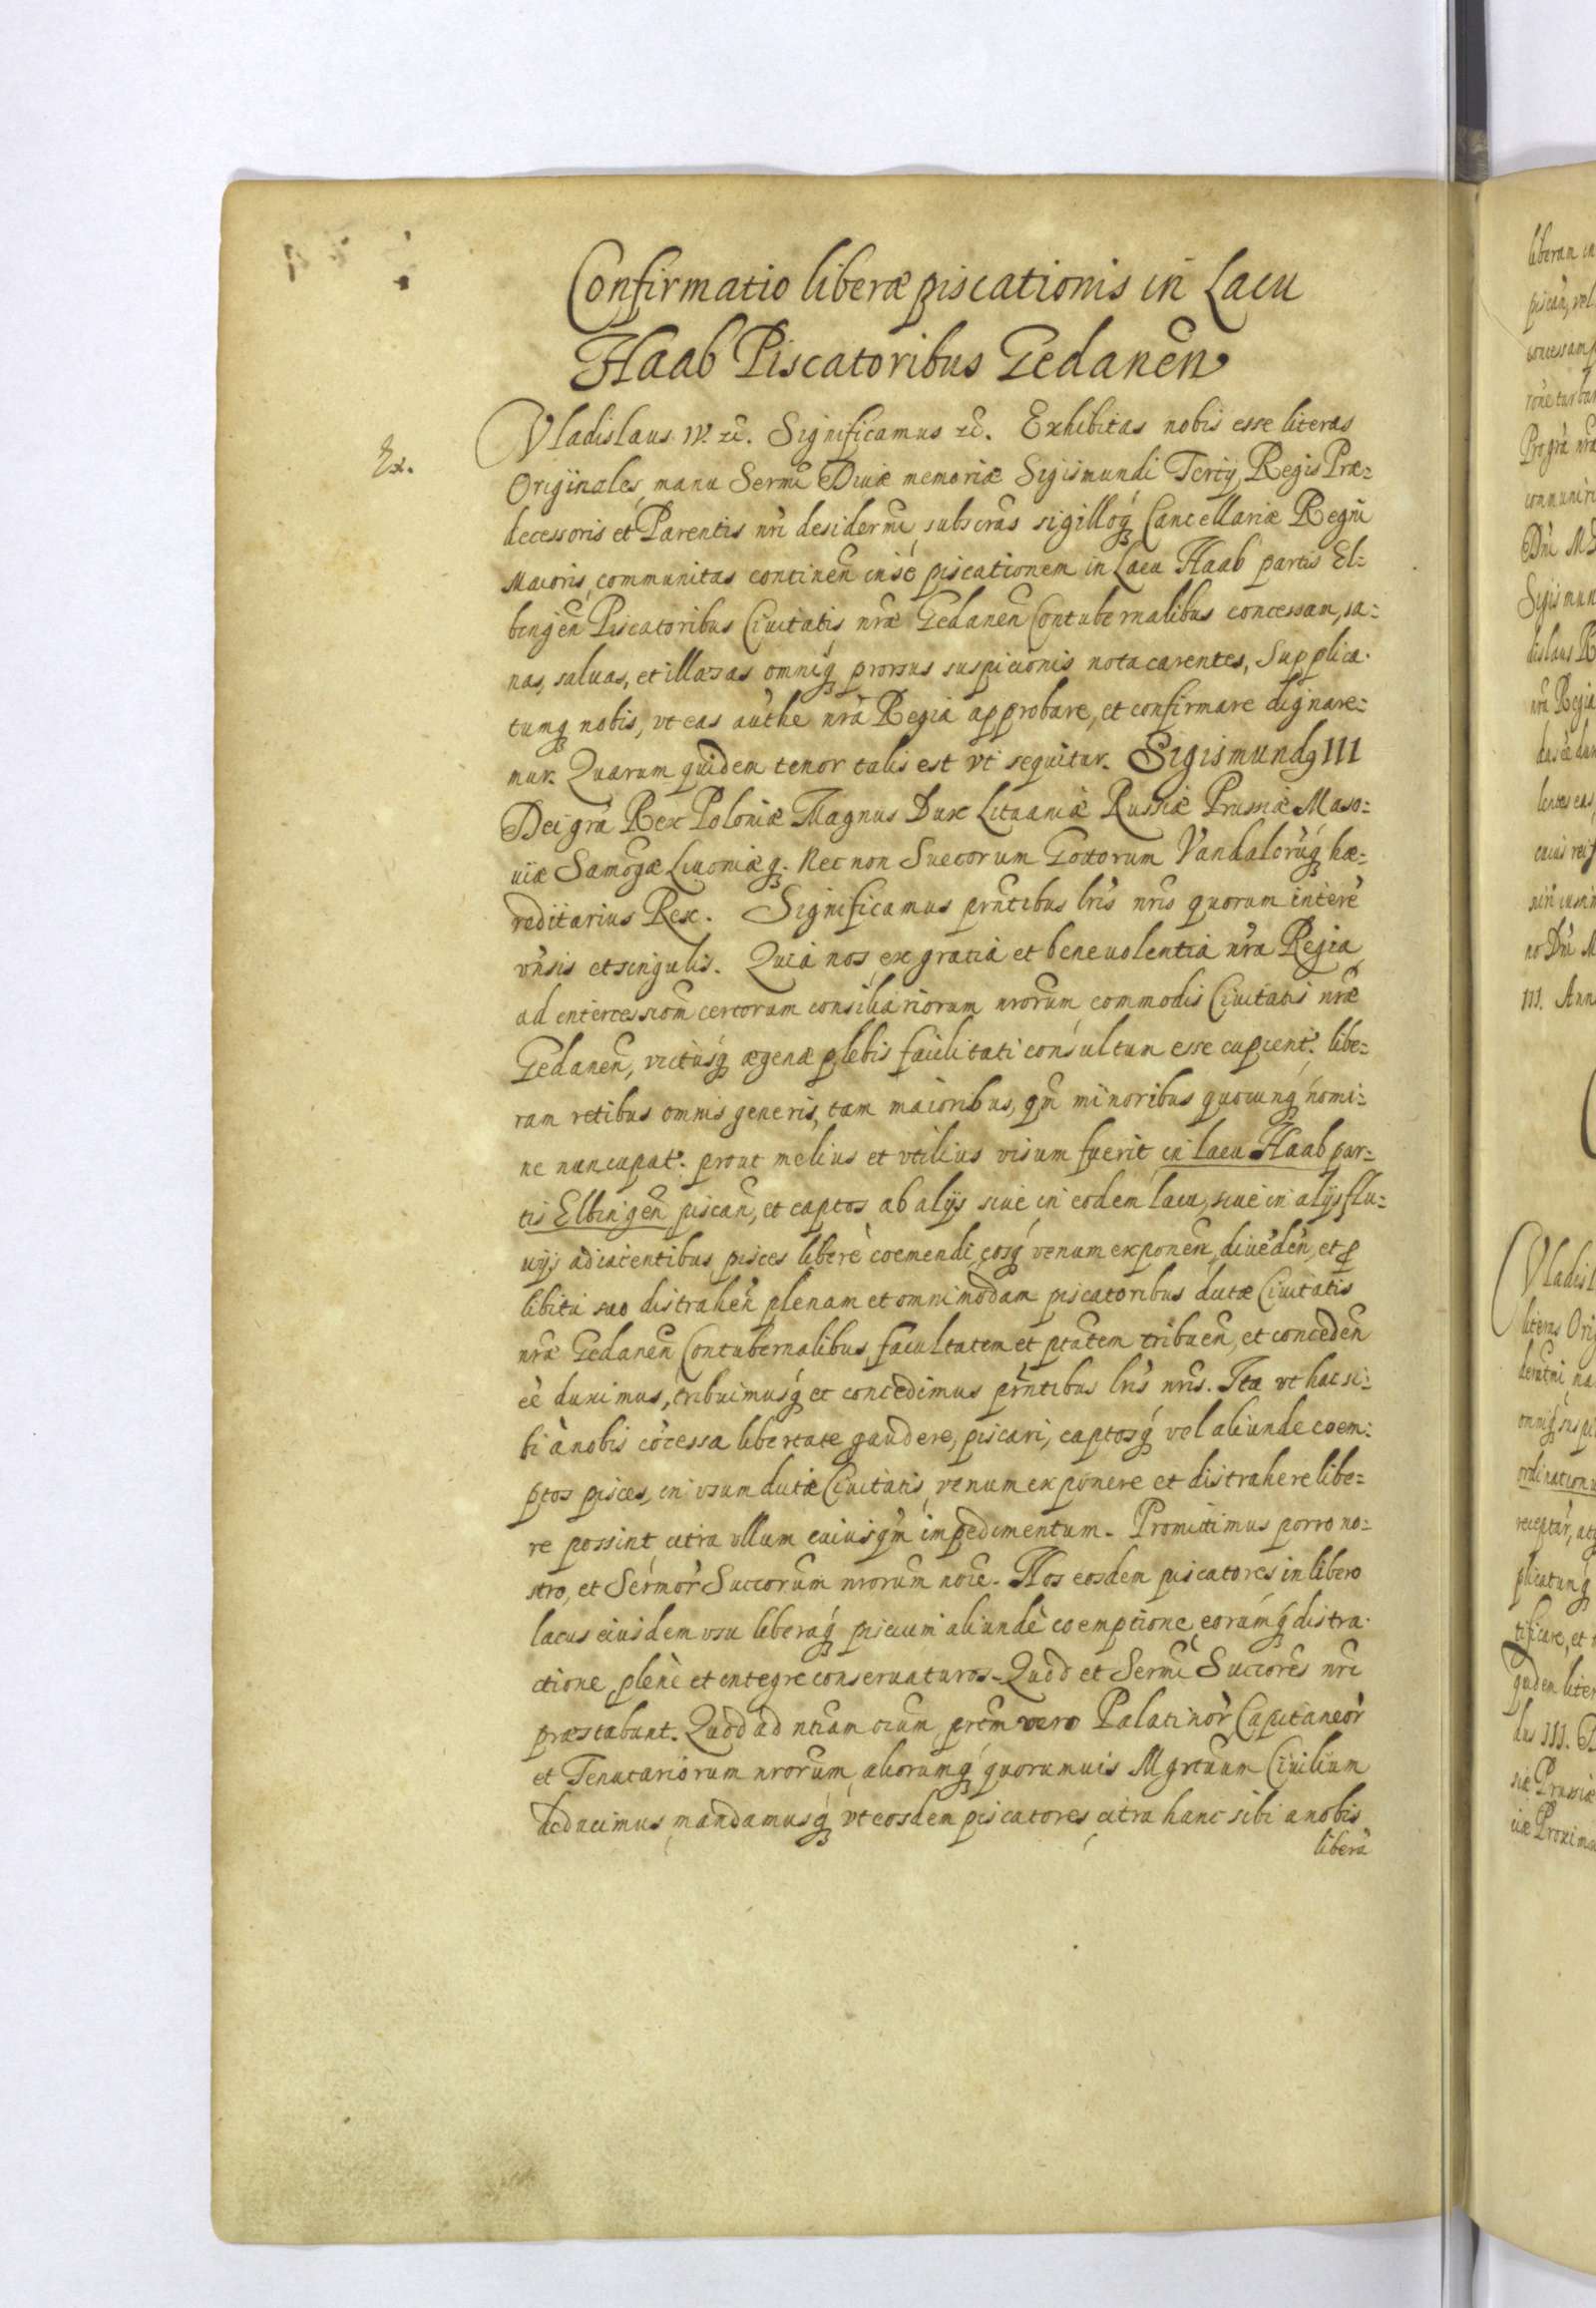 Confirmatio liberæ piscationis in Lacu
Haab Piscatoribus Gedaneñ
Ex.
Vladislaus IV. &c. Significamus &c. Exhibitas nobis esse literas
Originales, manu Sermi Diuæ memoriæ Sigismundi Tertij Regis Præ=
decessoris et Parentis nri desidermi, subscras sigilloq; Cancellariæ Regni
Maioris, communitas continen̄ in sé piscationem in Lacu Haab partis El=
bingen̄ Piscatoribus Ciuitatis nræ Gedanen̄ Contubernalibus concessam, sa=
nas, saluas, et illæsas omniq; prorsus suspicionis nota carentes, Supplica=
tumq; nobis, vt eas authe nrà Regia approbare, et confirmare dignare=
mur. Quarum quidem tenor talis est vt sequitur. Sigismundq III
Dei grà Rex Poloniæ Magnus Dux Lituaniæ Russiæ Prussiæ Maso=
uiæ Samogæ Liuoniæq;. Nec non Suecorum Gottorum Vandalorúq; hæ=
reditarius Rex. Significamus prñtibus lris nris quorum interè
vñsis et singulis. Quia nos, ex gratia et beneuolentia nrà Regia
ad intercessiom̄ certorum consiliariorum nrorum commodis Ciuitatis nræ
Gedanen̄, victúsq; ægenæ plebis facilitati consultum esse cupient: libe=
ram retibus omnis generis, tam maioribus, qm̄ minoribus quocunq; nomi=
ne nuncupat: prout melius et vtilius visum fuerit in lacu Haab par=
tis Elbingen̄ piscan̄, et captos ab alijs siue in eodem lacu, siue in alijs flu=
uijs adiacentibus pisces liberè coemendi, eosq; venum exponen̄, diueden̄, et p
libitu suo distrahen̄ plenam et omnimodam piscatoribus dictæ Ciuitatis
nræ Gedanen̄ Contubernalibus, facultatem et ptatem tribuen̄, et conceden̄
eè duximus, tribuimusq; et concedimus prñtibus lris nris. Ita vt hac si=
bi à nobis cócessa libertate gaudere, piscari, captosq; vel aliunde coem=
ptos pisces, in vsum dictæ Ciuitatis, venum exponere et distrahere libe=
re possint, citra vllum cuiusqm̄ impedimentum. Promittimus porro no=
stro, et Sermor Succorum nrorum noie. Nos eosdem piscatores in libero
lacus eiusdem vsu liberaq; piscium aliundè coemptione, eorúmq; distra=
ctione, plenè et integre conseruaturos. Quod et Sermi Succores nri
præstabunt. Quod ad ntiam oium, prtm vero Palatinor Capitaneor
et Tenutariorum nrorum, aliorumq; quorumuis Mgrtuum Ciuilium
deducimus, mandamusq; vt eosdem piscatores citra hanc sibi a nobis
liberà
liberam
piscan̄, vel
concessam
rone turba
Pro grà nrà
communiri
Dni M
Sigismun
dislaus R
nrà Regia
III. Ann
Vladisl
literas Ori
ordination
plicatumq;
tificare, et
quidem liter
dus III.
siæ Prussiæ